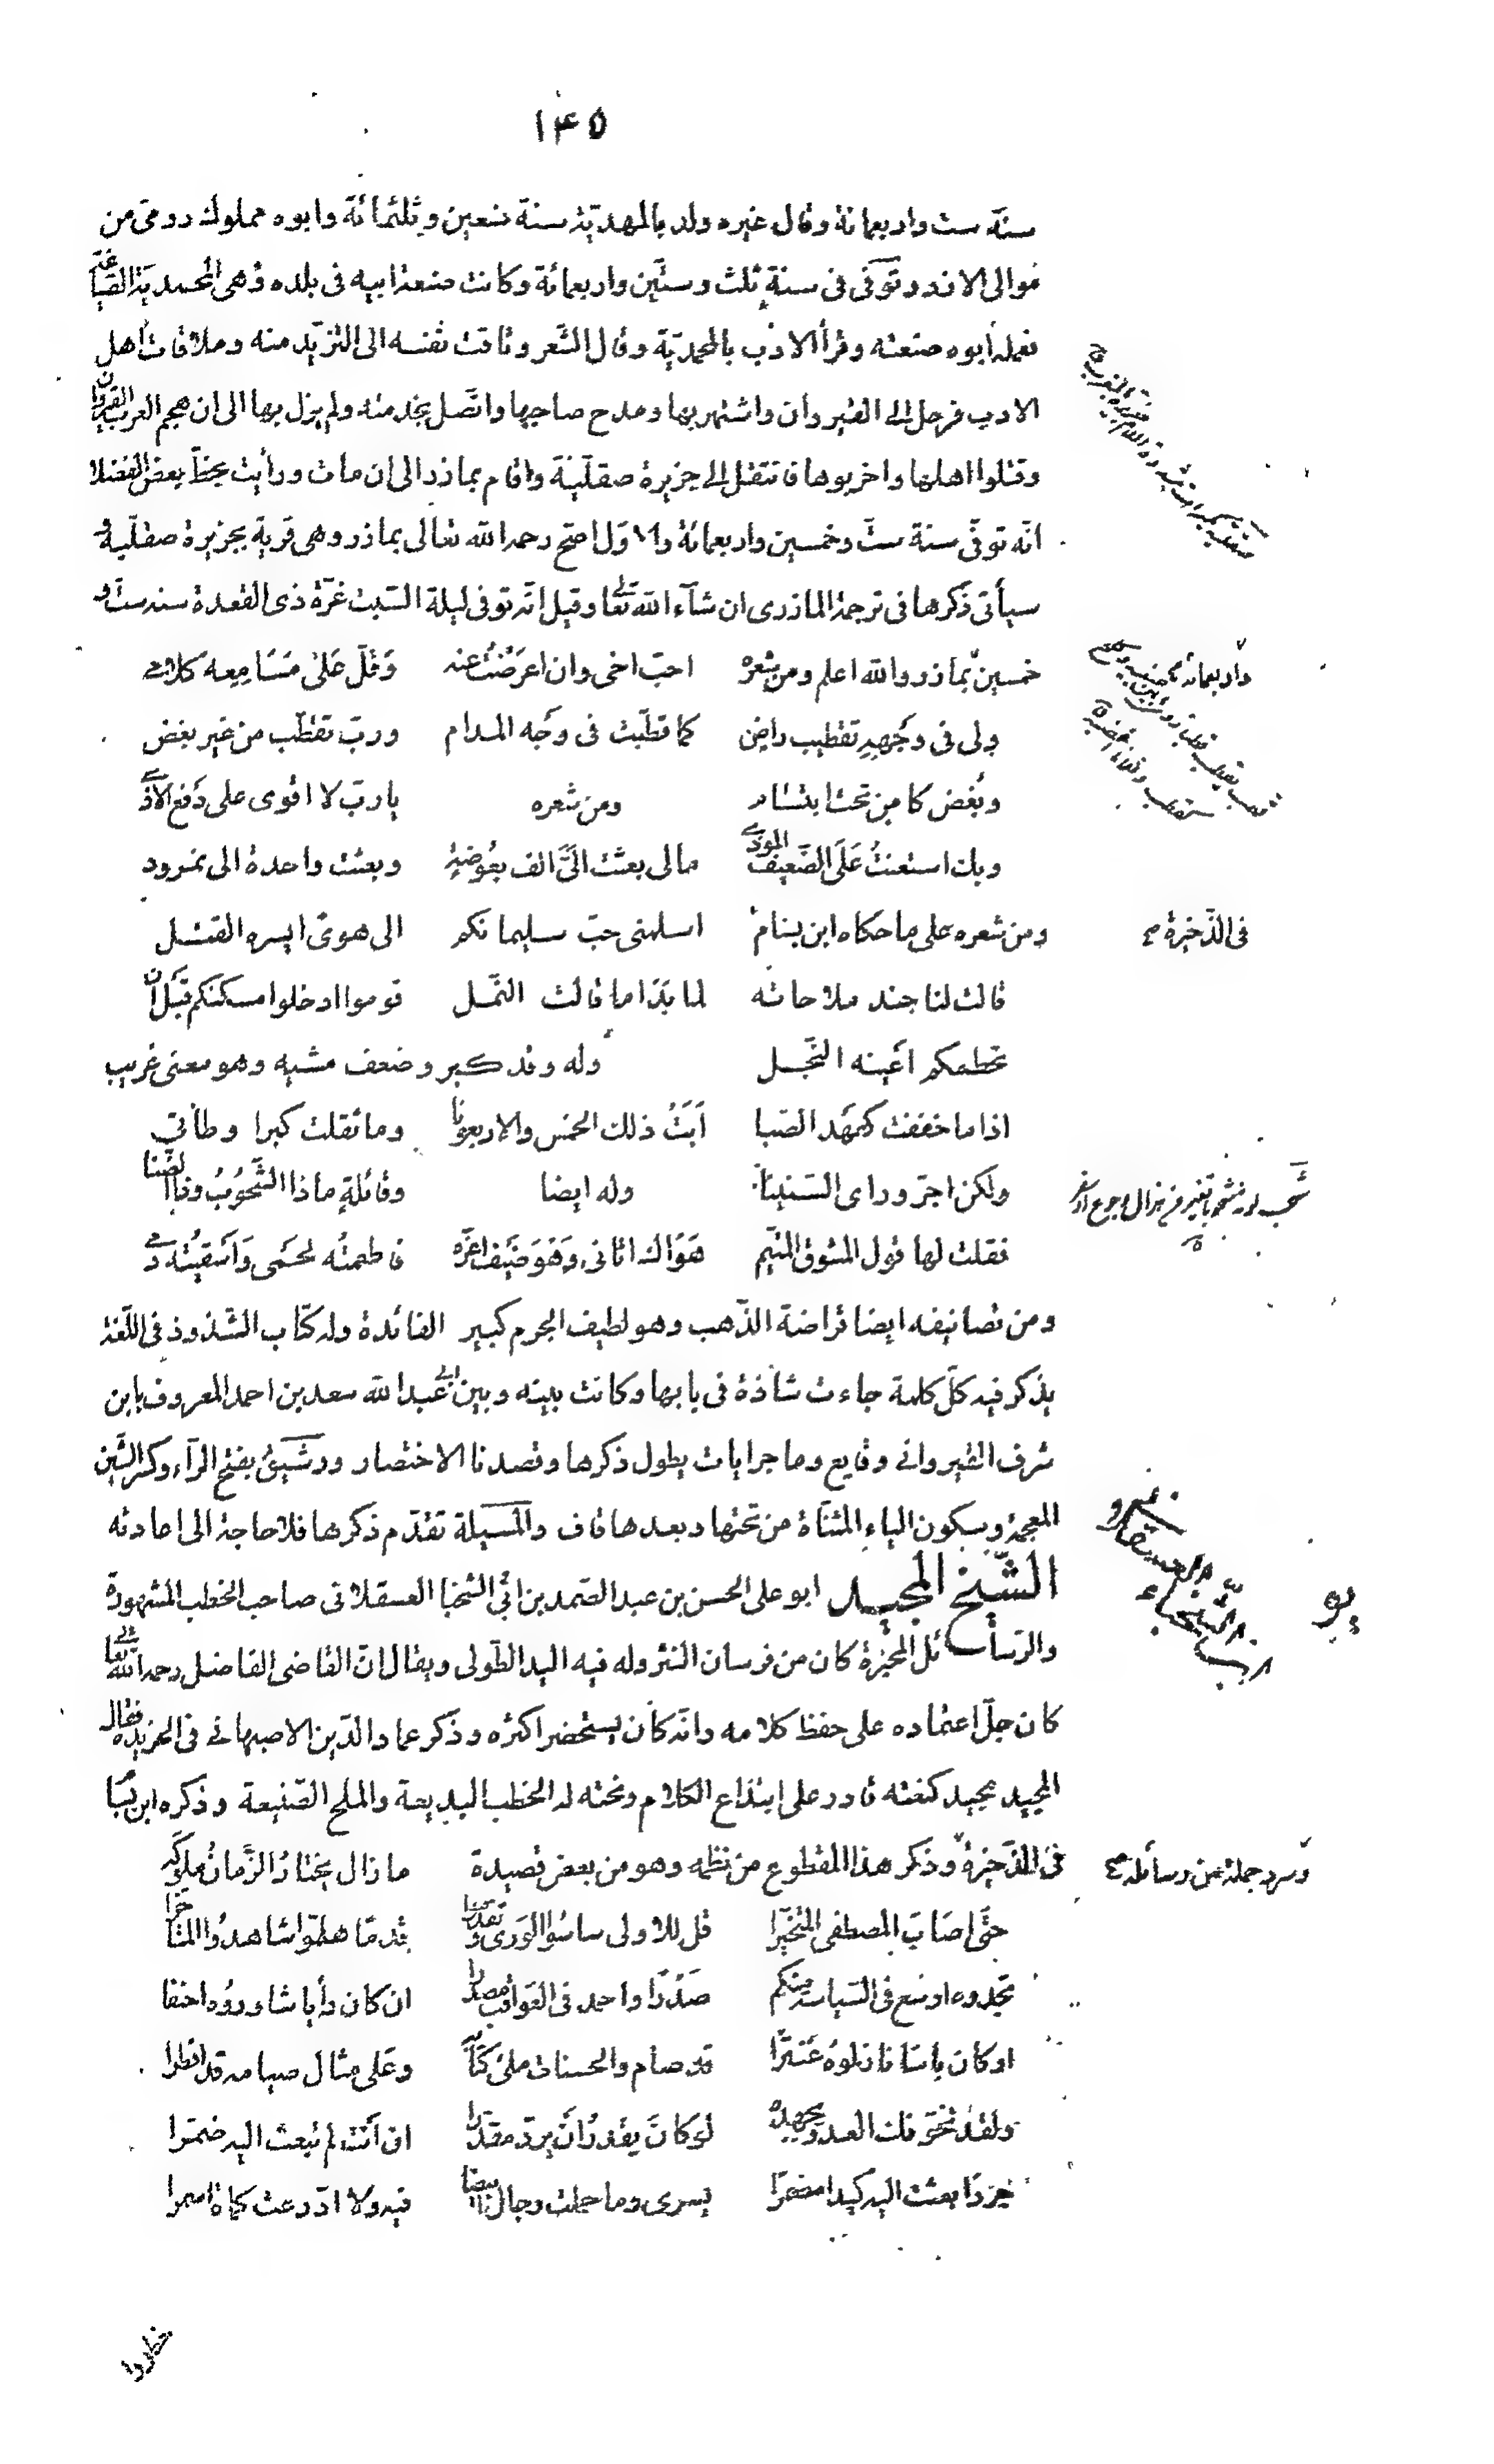 ١٤٥
سنة ست واربعمائة وقال غيره ولد بالمهديّة سنة تسعين وثلثمائة وابوه مملوك رومىّ من
موالى الازد وتوفى فى سنة ثلث وستّين واربعمائة وكانت صنعة ابيه فى بلده وهى المحمديّة الصّياغة
فعلمه أبوه صنعته وقرأ الادب بالمحمديّة وقال الشّعر وتاقت نفسه الى التزيّد منه وملاقات أهل
الادب فرحل الى القيروان واشتهر بها ومدح صاحبها واتّصل بخدمته ولم يزل بها الى ان هجم العرب القيروان
وقتلوا اهلها واخربوها فانتقل الى جزيرة صقلّيّة واقام بمازر الى ان مات ورأيت بخطّ بعض الفضلا
انّه توفّى سنة ستّ وخمسين واربعمائة والاوّل اصحّ رحمه الله تعالى بمازر وهى قرية بجزيرة صقلّية و
سيأتى ذكرها فى ترجمة المازرى ان شآء الله تعالى وقيل انّه توفى ليلة السّبت غرّة ذى القعدة سنه ستّ و
خمسين بمازر والله اعلم ومن شعره احبّ اخى وان اعرَضْتُ عنه وَقَلّ عَلىٰ مَسَامِعِه كلامى
ولى فى وَجْهِهِ تقطيب راضٍ كما قطّبت فى وَجْه المدام وربّ تقطّب من غير بغض
وبُغض كامن تحت ابتسام ومن شعره يا ربّ لا اقوى على دَفع الاذى
وبك استعنتُ عَلَى الضّعيف الموذى مالى بعثت الىَّ الف بعُوضةٍ وبعثت واحدة الى نمرود
ومن شعره على ما حكاه ابن بسام اسلمنى حبّ سليمانكم الى هوىً ايسره القتل
فى الذّخيرة صح
قالت لنا جند ملاحاته لما بَدَا ما قالت النّمل قوموا ادخلوا مسكنكم قَبْل أن
تحطمكم اعْينه النُّجل وله وقد كبر وضعف مشيه وهو معنى غريب
اذا ما خففت كعَهد الصّبا أَبَتْ ذلك الخمس والاربعونا وما ثقلت كبرا وطأتى
ولكن اجرّ وراى السّنينا وله ايضا وقائلةٍ ماذا الشّحُوبُ وذا الضّنا
فقلت لها قول المشوق المتيّم هَوَاك اتانى وَهْوَ ضَيْف اعزّه فاطعمتُه لحمى وَاَسقيتُه دمى
ومن تصانيفه ايضا قراضة الذّهب وهو لطيف الجرم كبير الفائدة وله كتاب الشّذوذ فى اللّغة
يذكر فيه كلّ كلمة جاءت شاذة فى بابها وكانت بينه وبين ابى عبد الله سعد بن احمد المعروف بابن
شرف القيروانى وقايع وماجرايات يطول ذكرها وقصدنا الاختصار ورشيق بفتح الرآء وكسر الشّين
المعجمة وبسكون الياء المثنّاة من تحتها وبعدها قاف والمسيلة تقدّم ذكرها فلا حاجة الى اعادته
الشّيخ المجيد ابو على الحسن بن عبد الصّمد بن ابى الشخبا العسقلانى صاحب الخطب المشهورة
والرّسائل المحبّرة كان من فرسان النثر وله فيه اليد الطّولى ويقال انّ القاضى الفاضل رحمه الله تعالى
كان جلّ اعتماده على حفظ كلامه وانّه كان يستحضر اكثره وذكره عماد الدّين الاصبهانى فى الخريدة فقال
المجيد مجيد كنعته قادر على ابتداع الكلام ونحته له الخطب البديعة والملح الصّنيعة وذكره ابن بسّام
فى الذّخيرة وذكر هذا المقطوع من نظمه وهو من بعض قصيدة ما زال يختارُ الزَّمانُ ملوكه
وسرد جملة من رسائله صح
حتّى اصَابَ المصطفى المتخيّرا قل للاولى ساسُوا الوَرى وتقدّموا قدمًا هلمّوا شاهدُوا المتأخّرا
تجدوه اوسَع فى السّياسة منكم صَدْرًا واحمد فى العَواقب مصدرا ان كان رأيا شاوروُه احنفا
او كان بأسًا نازلوهُ عَنتَرًا قد صام والحسنات ملئ كتابه وعَلى مثال صيامه قد افطرا
ولقد تخوّفك العدوّ بجهده لو كانَ يقدرُ أن يردّ مقدّرا ان أنت لم تبعث اليه ضمّرا
جردًا بعثت اليه كيدا مضمرًا يسرى وما حملت رجال ابيضا فيه ولا ادّرعت كماة اسمرا
يو